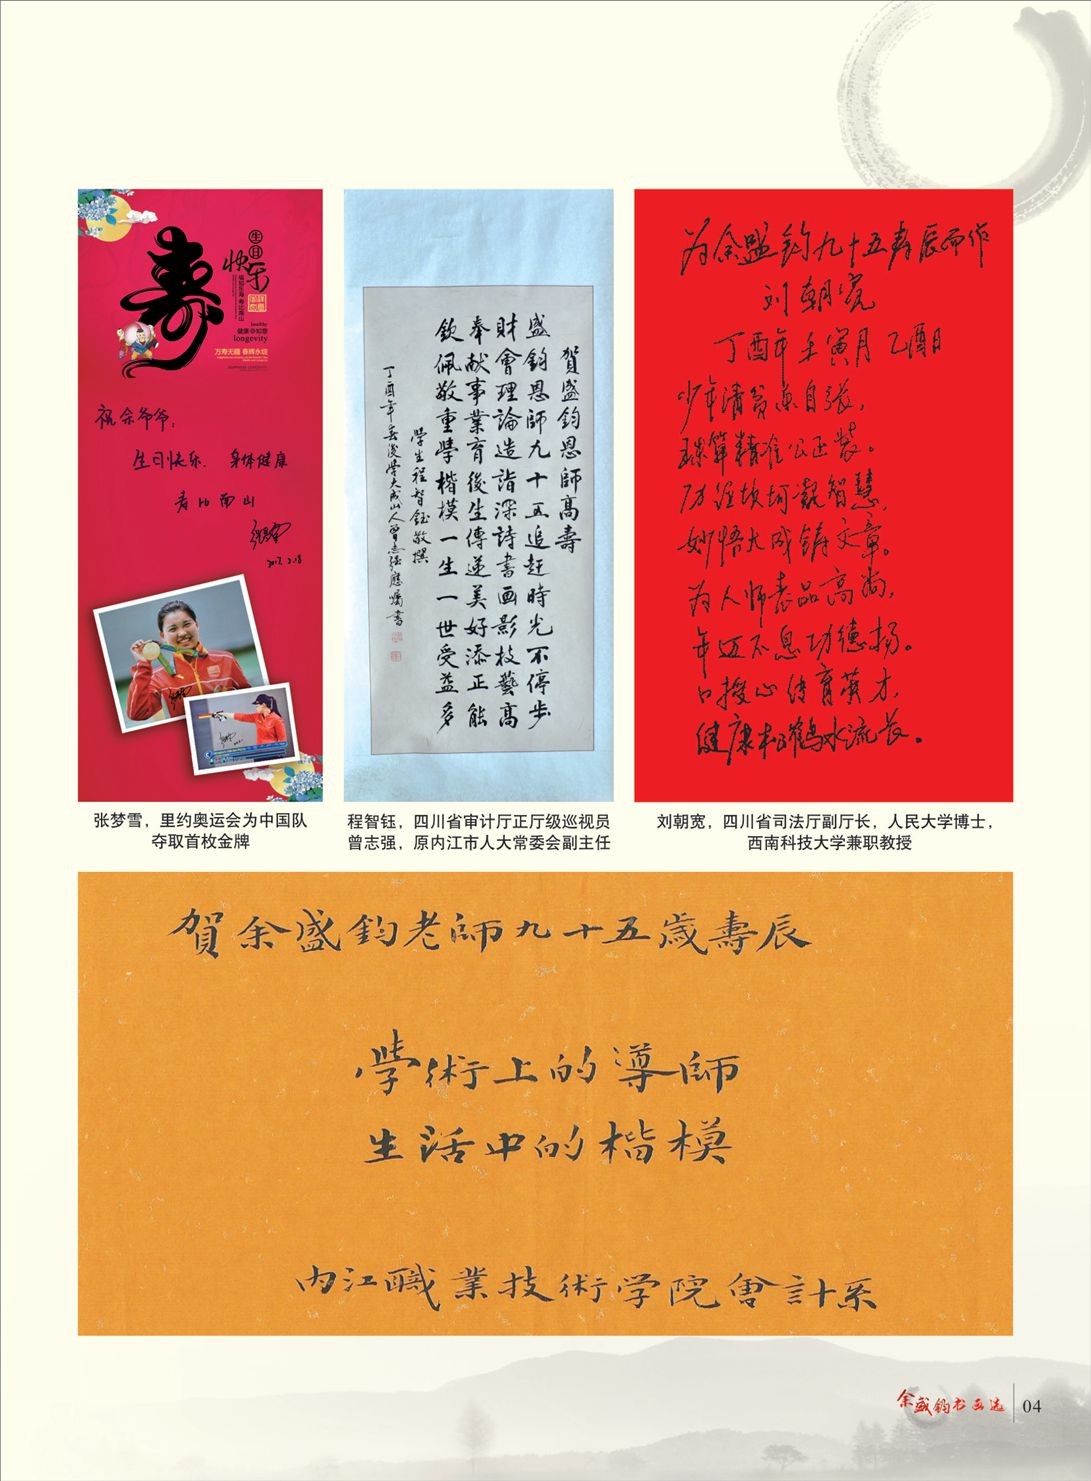 寿
生日
快乐
福如东海 寿比南山
healthy
健康 如意
longevity
万寿无疆 春辉永绽
祝余爷爷：
生日快乐、身体健康
寿比南山
2017.2.18
张梦雪，里约奥运会为中国队
夺取首枚金牌
賀盛鈞恩師高壽
盛鈞恩師九十五追赶時光不停步
財會理論造詣深詩書画影技藝高
奉献事業育後生傳递美好添正能
欽佩敬重學楷模一生一世受益多
學生程智鈺敬撰
丁酉年春後學大成山人曾志强應嘱書
程智钰，四川省审计厅正厅级巡视员
曾志强，原内江市人大常委会副主任
为余盛钧九十五寿辰而作
刘朝宽
丁酉年壬寅月乙酉日
少年清贫志自强，
珠算精准公正裝。
历经坎坷凝智慧，
妙悟大成铸文章。
为人师表品高尚，
年迈不息功德扬。
口授心传育英才，
健康松鹤水流长。
刘朝宽，四川省司法厅副厅长，人民大学博士，
西南科技大学兼职教授
賀余盛鈞老師九十五歲壽辰
學術上的導師
生活中的楷模
内江職業技術学院會計系
余盛钧书画选
04